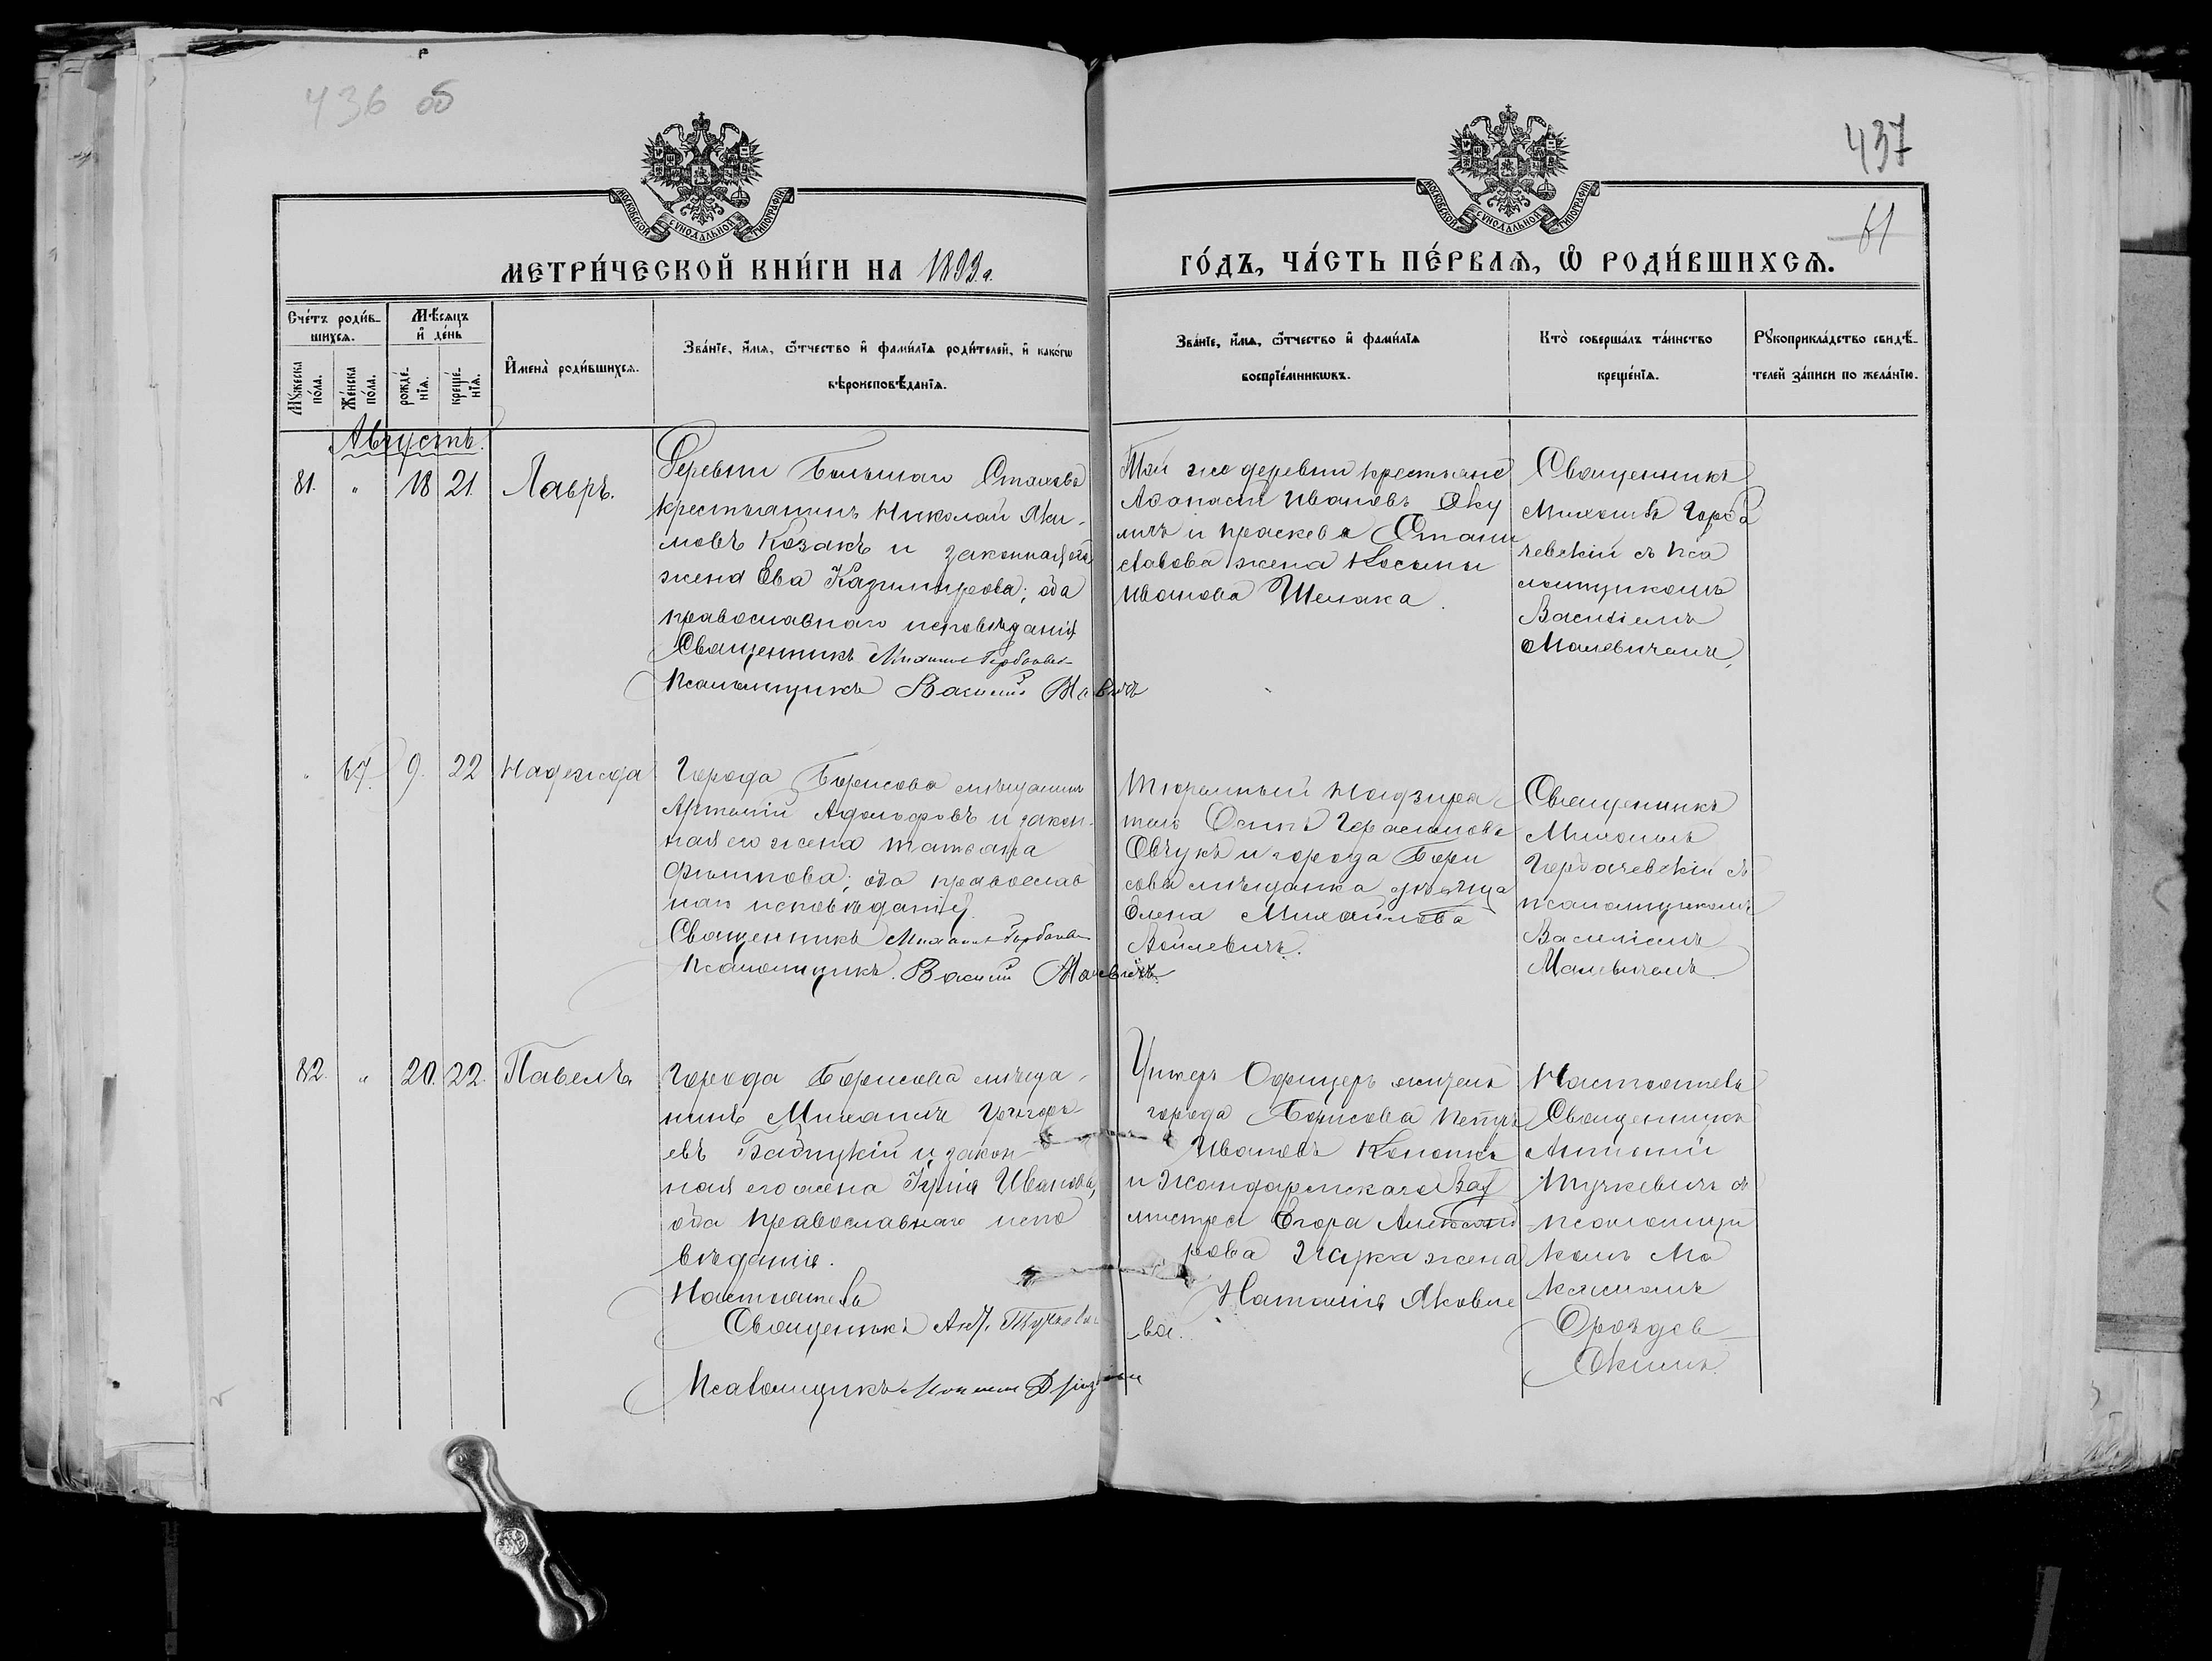 436 об
437
61
МОСКОВСКОЙ СѴНОДАЛЬНОЙ ТИПОГРАФІИ
МОСКОВСКОЙ СѴНОДАЛЬНОЙ ТИПОГРАФІИ
МЕТРИ́ЧЕСКОЙ КНИ́ГИ НА 1893 г.
ГО́ДЪ, ЧА́СТЬ ПЕ́РВАѦ, Ѽ РОДИ́ВШИХСѦ.
Сче́тъ роди́в-
шихсѧ.
Мѣ́сѧцъ
и҆ де́нь
Мꙋ́жеска
по́ла.
Же́нска
по́ла.
рожде́-
нїѧ.
креще́-
нїѧ.
И҆мена̀ роди́вшихсѧ.
Зва́нїе, и҆́мѧ, ѻ҆́тчество и҆ фами́лїѧ роди́телей, и҆ како́гѡ
вѣроисповѣ́данїѧ.
Зва́нїе, и҆́мѧ, ѻ҆́тчество и҆ фами́лїѧ
воспрїе́мникѡвъ.
Кто̀ соверша́лъ та́инство
креще́нїѧ.
Рꙋкоприкла́дство свидѣ́-
телей за́писи по жела́нїю.
Августъ.
81. " 18 21. Лавръ.
Деревни Большаго Стахова
крестьянинъ Николай Яки-
мовъ Козакъ и законная его
жена Ева Казимирова; оба
православнаго исповѣданія
Священникъ Михаилъ Горбачевск
Псаломщикъ Василій Малевичъ
Той же деревни крестьяне
Аѳанасій Ивановъ Яку
личъ и Праскева Стани
славова жена Косьмы
Иванова Шелака.
Священникъ
Михаилъ Горба
чевскій съ пса
ломщикомъ
Василіемъ
Малевичемъ.
67. 9. 22 Надежда
Города Борисова мѣщанинъ
Артемій Адольфовъ и закон-
ная его жена Татьяна
Филипова; оба православ
наго исповѣданія.
Священникъ Михаилъ Горбачев
Псаломщикъ Василій Малевичъ.
Тюремный надзира
тель Осипъ Герасимовъ
Овчукъ и города Бори
сова мѣщанка дѣвица
Елена Михайлова
Войлевичъ.
Священникъ
Михаилъ
Горбачевскій съ
псаломщикомъ
Василіемъ
Малевичемъ.
82. " 20. 22. Павелъ
Города Борисова мѣща-
нинъ Михаилъ Григорь-
евъ и закон-
ная его жена Ивановва,
оба православнаго испо
вѣданія.
Настоятель
Священникъ Ант. Тучкевич
Псаломщикъ Максим Дрозд
Унтеръ Офицеръ житель
города Борисова Петръ
Ивановъ Конопка
и Жандармскаго Вах
мистра Егора Александ
рова жена
Наталія Яковле
ва.
Настоятель
Священникъ
Антоній
Тучкевичъ съ
псаломщи
комъ Ма
ксимомъ
Дроздов
скимъ.